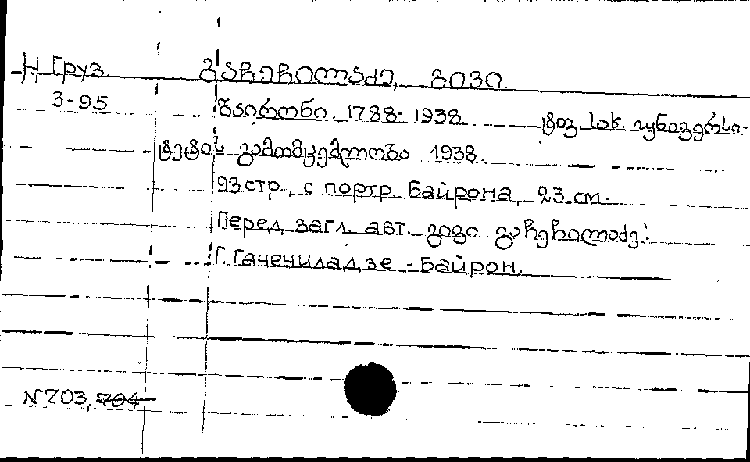 Н Груз გაჩეჩილაძე, გივი
3-95 ბაირონი 1788-1938 ტფ. სახ. უნივერსი-
ტეტის გამომცემლობა 1938.
93 стр., с портр. Байрона, 23 см.
Перед загл. авт. გივი გაჩეჩილაძე.
Г. Гачечиладзе - Байрон.
N 703, 704